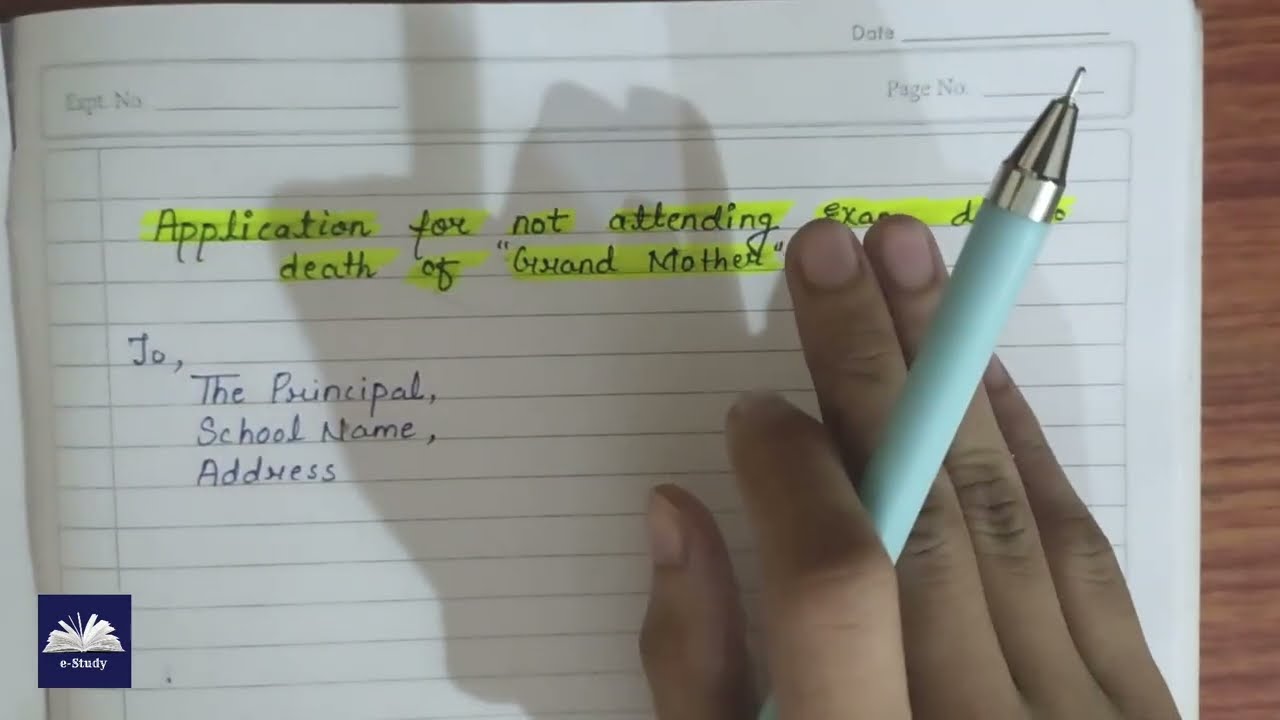 Date
Expt. No.
Page No.
Application for not attending Exam
death of "Grand Mother"
To,
The Principal,
School Name,
Address
e-Study